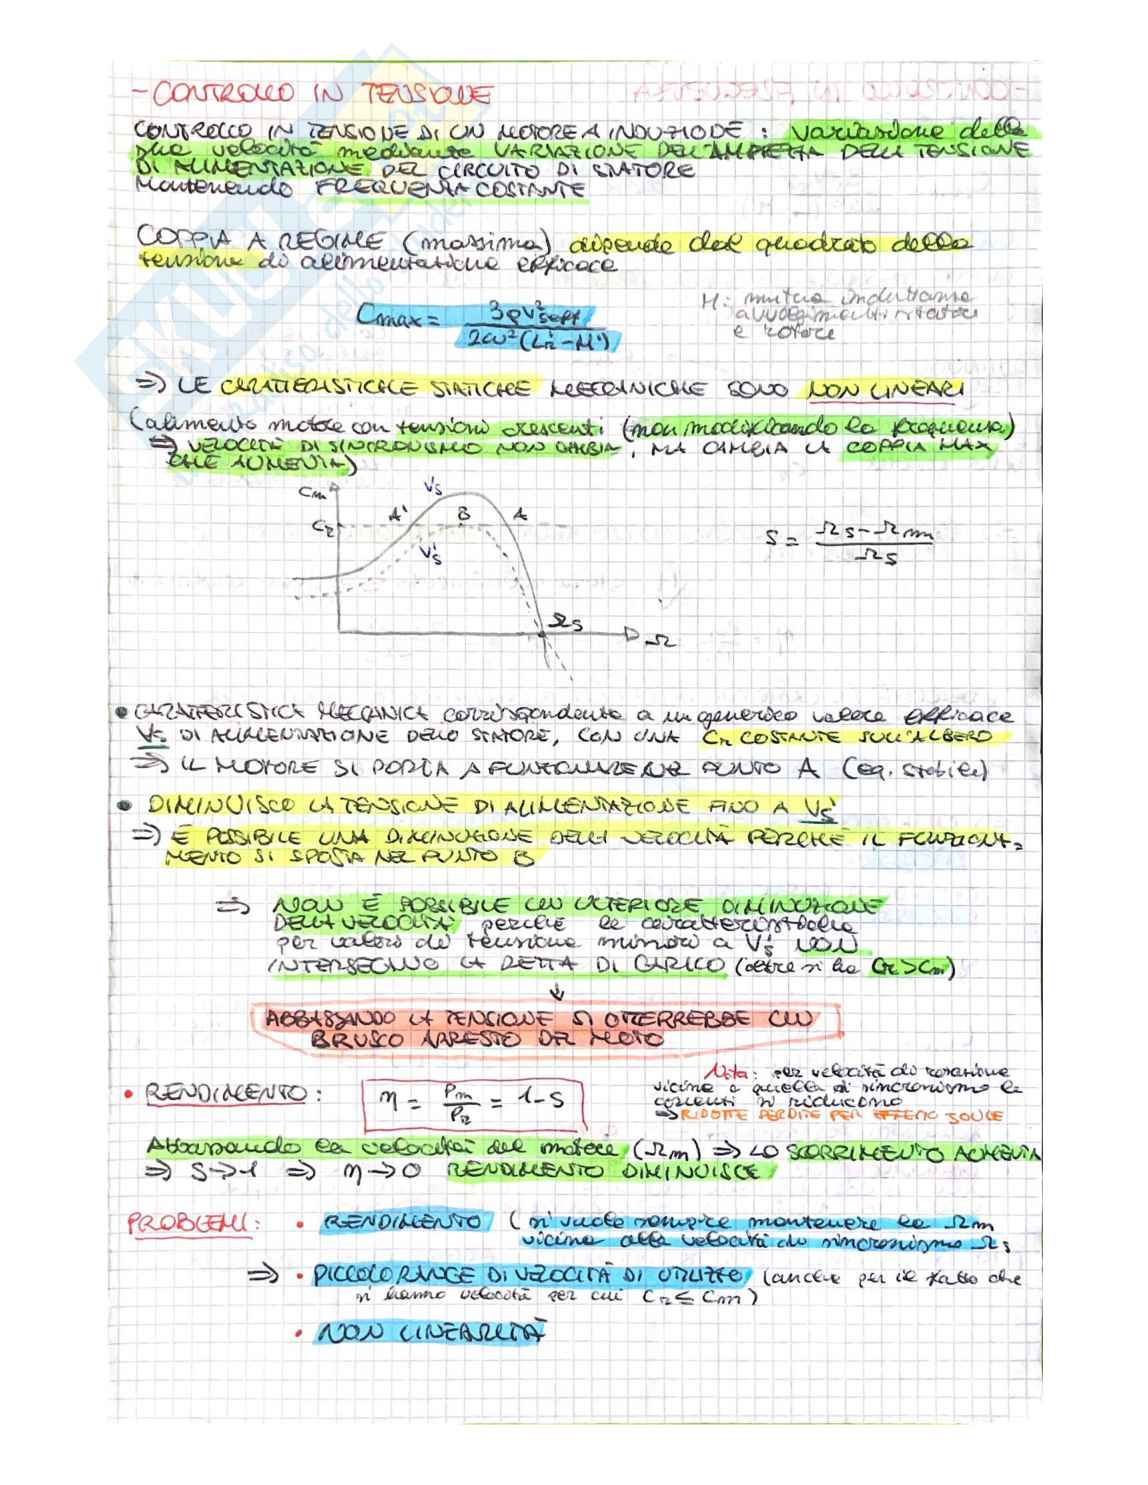 - CONTROLLO IN TENSIONE
CONTROLLO IN TENSIONE DI UN MOTORE A INDUZIONE : variazione della
sua velocità mediante VARIAZIONE DELL'AMPIEZZA DELLA TENSIONE
DI ALIMENTAZIONE DEL CIRCUITO DI STATORE
Mantenendo FREQUENZA COSTANTE
COPPIA A REGIME (massima) dipende dal quadrato della
tensione di alimentazione efficace
Cmax = 3pV²seff / 2ω²(L'r - M')
M: mutua induttanza
avvolgimenti statore
e rotore
=> LE CARATTERISTICHE STATICHE MECCANICHE SONO NON LINEARI
(alimento motore con tensioni crescenti (non modificando la frequenza)
=> VELOCITÀ DI SINCRONISMO NON CAMBIA, MA CAMBIA LA COPPIA MAX
CHE AUMENTA)
Cm Vs
Cr A' B A
V's
S = Ωs - Ωm / Ωs
Ωs
Ω
• CARATTERISTICA MECCANICA corrispondente a un generico valore efficace
Vs DI ALIMENTAZIONE DELLO STATORE, CON UNA Cr COSTANTE SULL'ALBERO
=> IL MOTORE SI PORTA A FUNZIONARE NEL PUNTO A (eq. stabile)
• DIMINUISCO LA TENSIONE DI ALIMENTAZIONE FINO A V's
=> È POSSIBILE UNA DIMINUZIONE DELLA VELOCITÀ PERCHÈ IL FUNZIONA-
MENTO SI SPOSTA NEL PUNTO B
=> NON È POSSIBILE UN ULTERIORE DIMINUZIONE
DELLA VELOCITÀ perché le caratteristiche
per valori di tensione minori a V's NON
INTERSECANO LA RETTA DI CARICO (oltre si ha Cr > Cm)
↓
ABBASSANDO LA TENSIONE SI OTTERREBBE UN
BRUSCO ARRESTO DEL MOTO
• RENDIMENTO : η = Pm / Pr = 1 - S
Nota: per velocità di rotazione
vicine a quella di sincronismo le
correnti si riducono
=> RIDOTTE PERDITE PER EFFETTO JOULE
Abbassando la velocità del motore (Ωm) => LO SCORRIMENTO AUMENTA
=> S → 1 => η → 0 RENDIMENTO DIMINUISCE
PROBLEMI: • RENDIMENTO (si vuole sempre mantenere la Ωm
vicina alla velocità di sincronismo Ωs
=> • PICCOLO RANGE DI VELOCITÀ DI UTILIZZO (anche per il fatto che
si hanno velocità per cui Cr ≤ Cm)
• NON LINEARITÀ